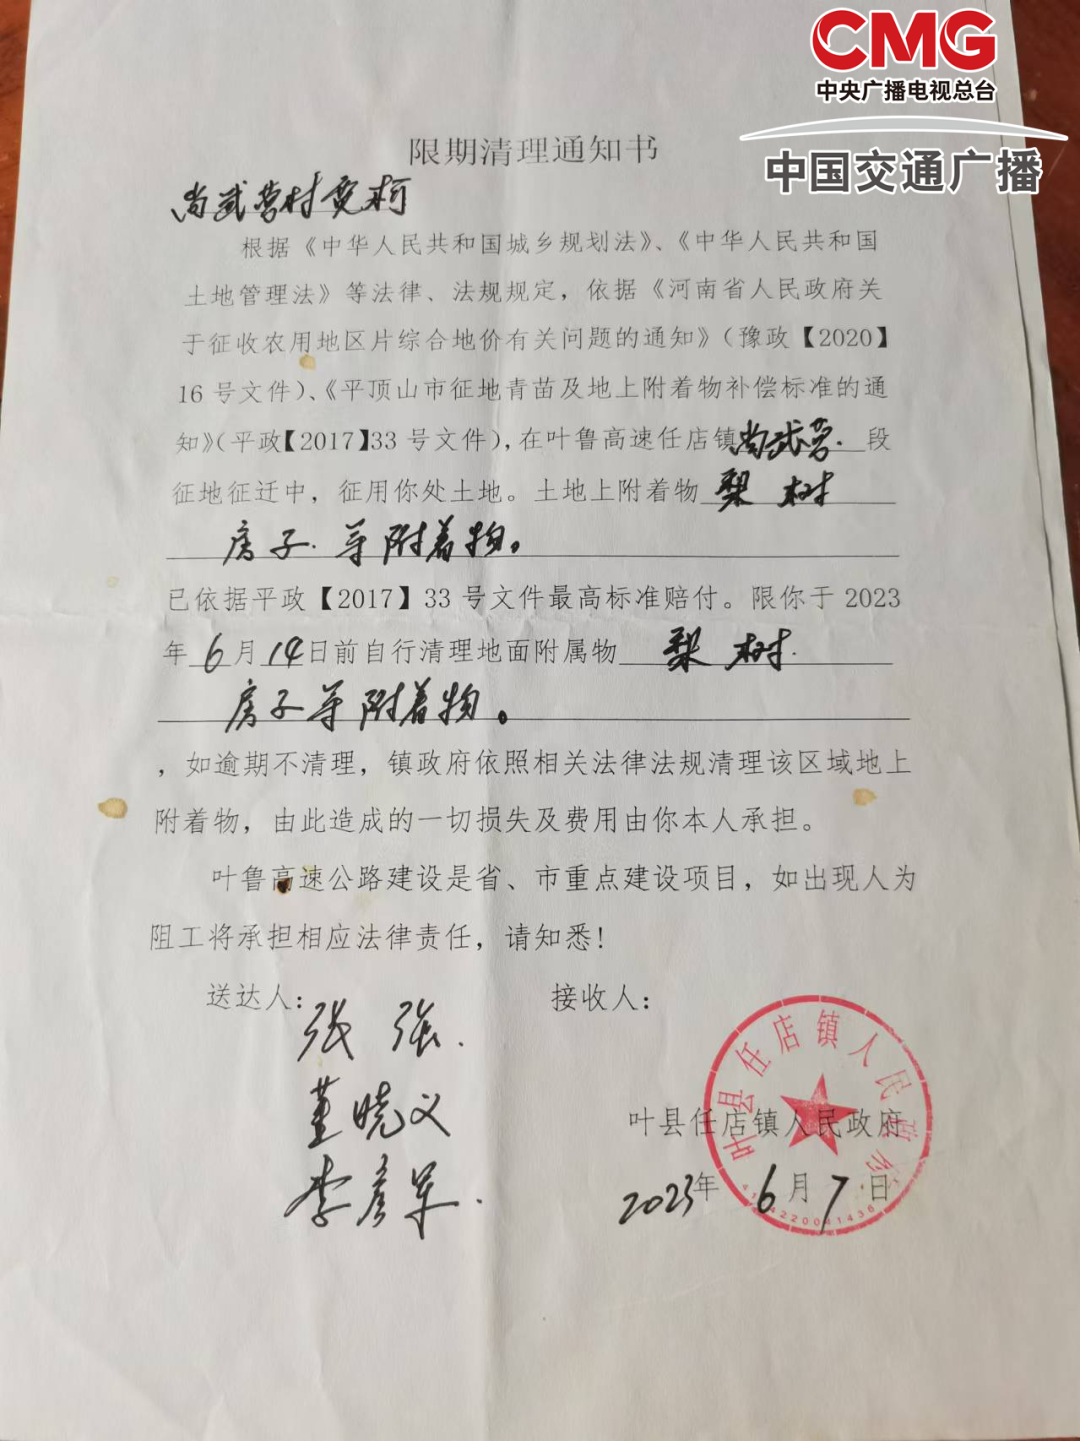 CMG
中央广播电视总台
中国交通广播
限期清理通知书
尚武营村 柯
根据《中华人民共和国城乡规划法》、《中华人民共和国
土地管理法》等法律、法规规定，依据《河南省人民政府关
于征收农用地区片综合地价有关问题的通知》（豫政【2020】
16号文件）、《平顶山市征地青苗及地上附着物补偿标准的通
知》（平政【2017】33号文件），在叶鲁高速任店镇尚武营.段
征地征迁中，征用你处土地。土地上附着物梨树
房子.等附着物。
已依据平政【2017】33号文件最高标准赔付。限你于2023
年6月14日前自行清理地面附属物梨树.
房子等附着物。
，如逾期不清理，镇政府依照相关法律法规清理该区域地上
附着物，由此造成的一切损失及费用由你本人承担。
叶鲁高速公路建设是省、市重点建设项目，如出现人为
阻工将承担相应法律责任，请知悉！
送达人： 接收人：
张强.
董晓义
李彦军.
叶县任店镇人民政府
2023年6月7日
叶县任店镇人民政府